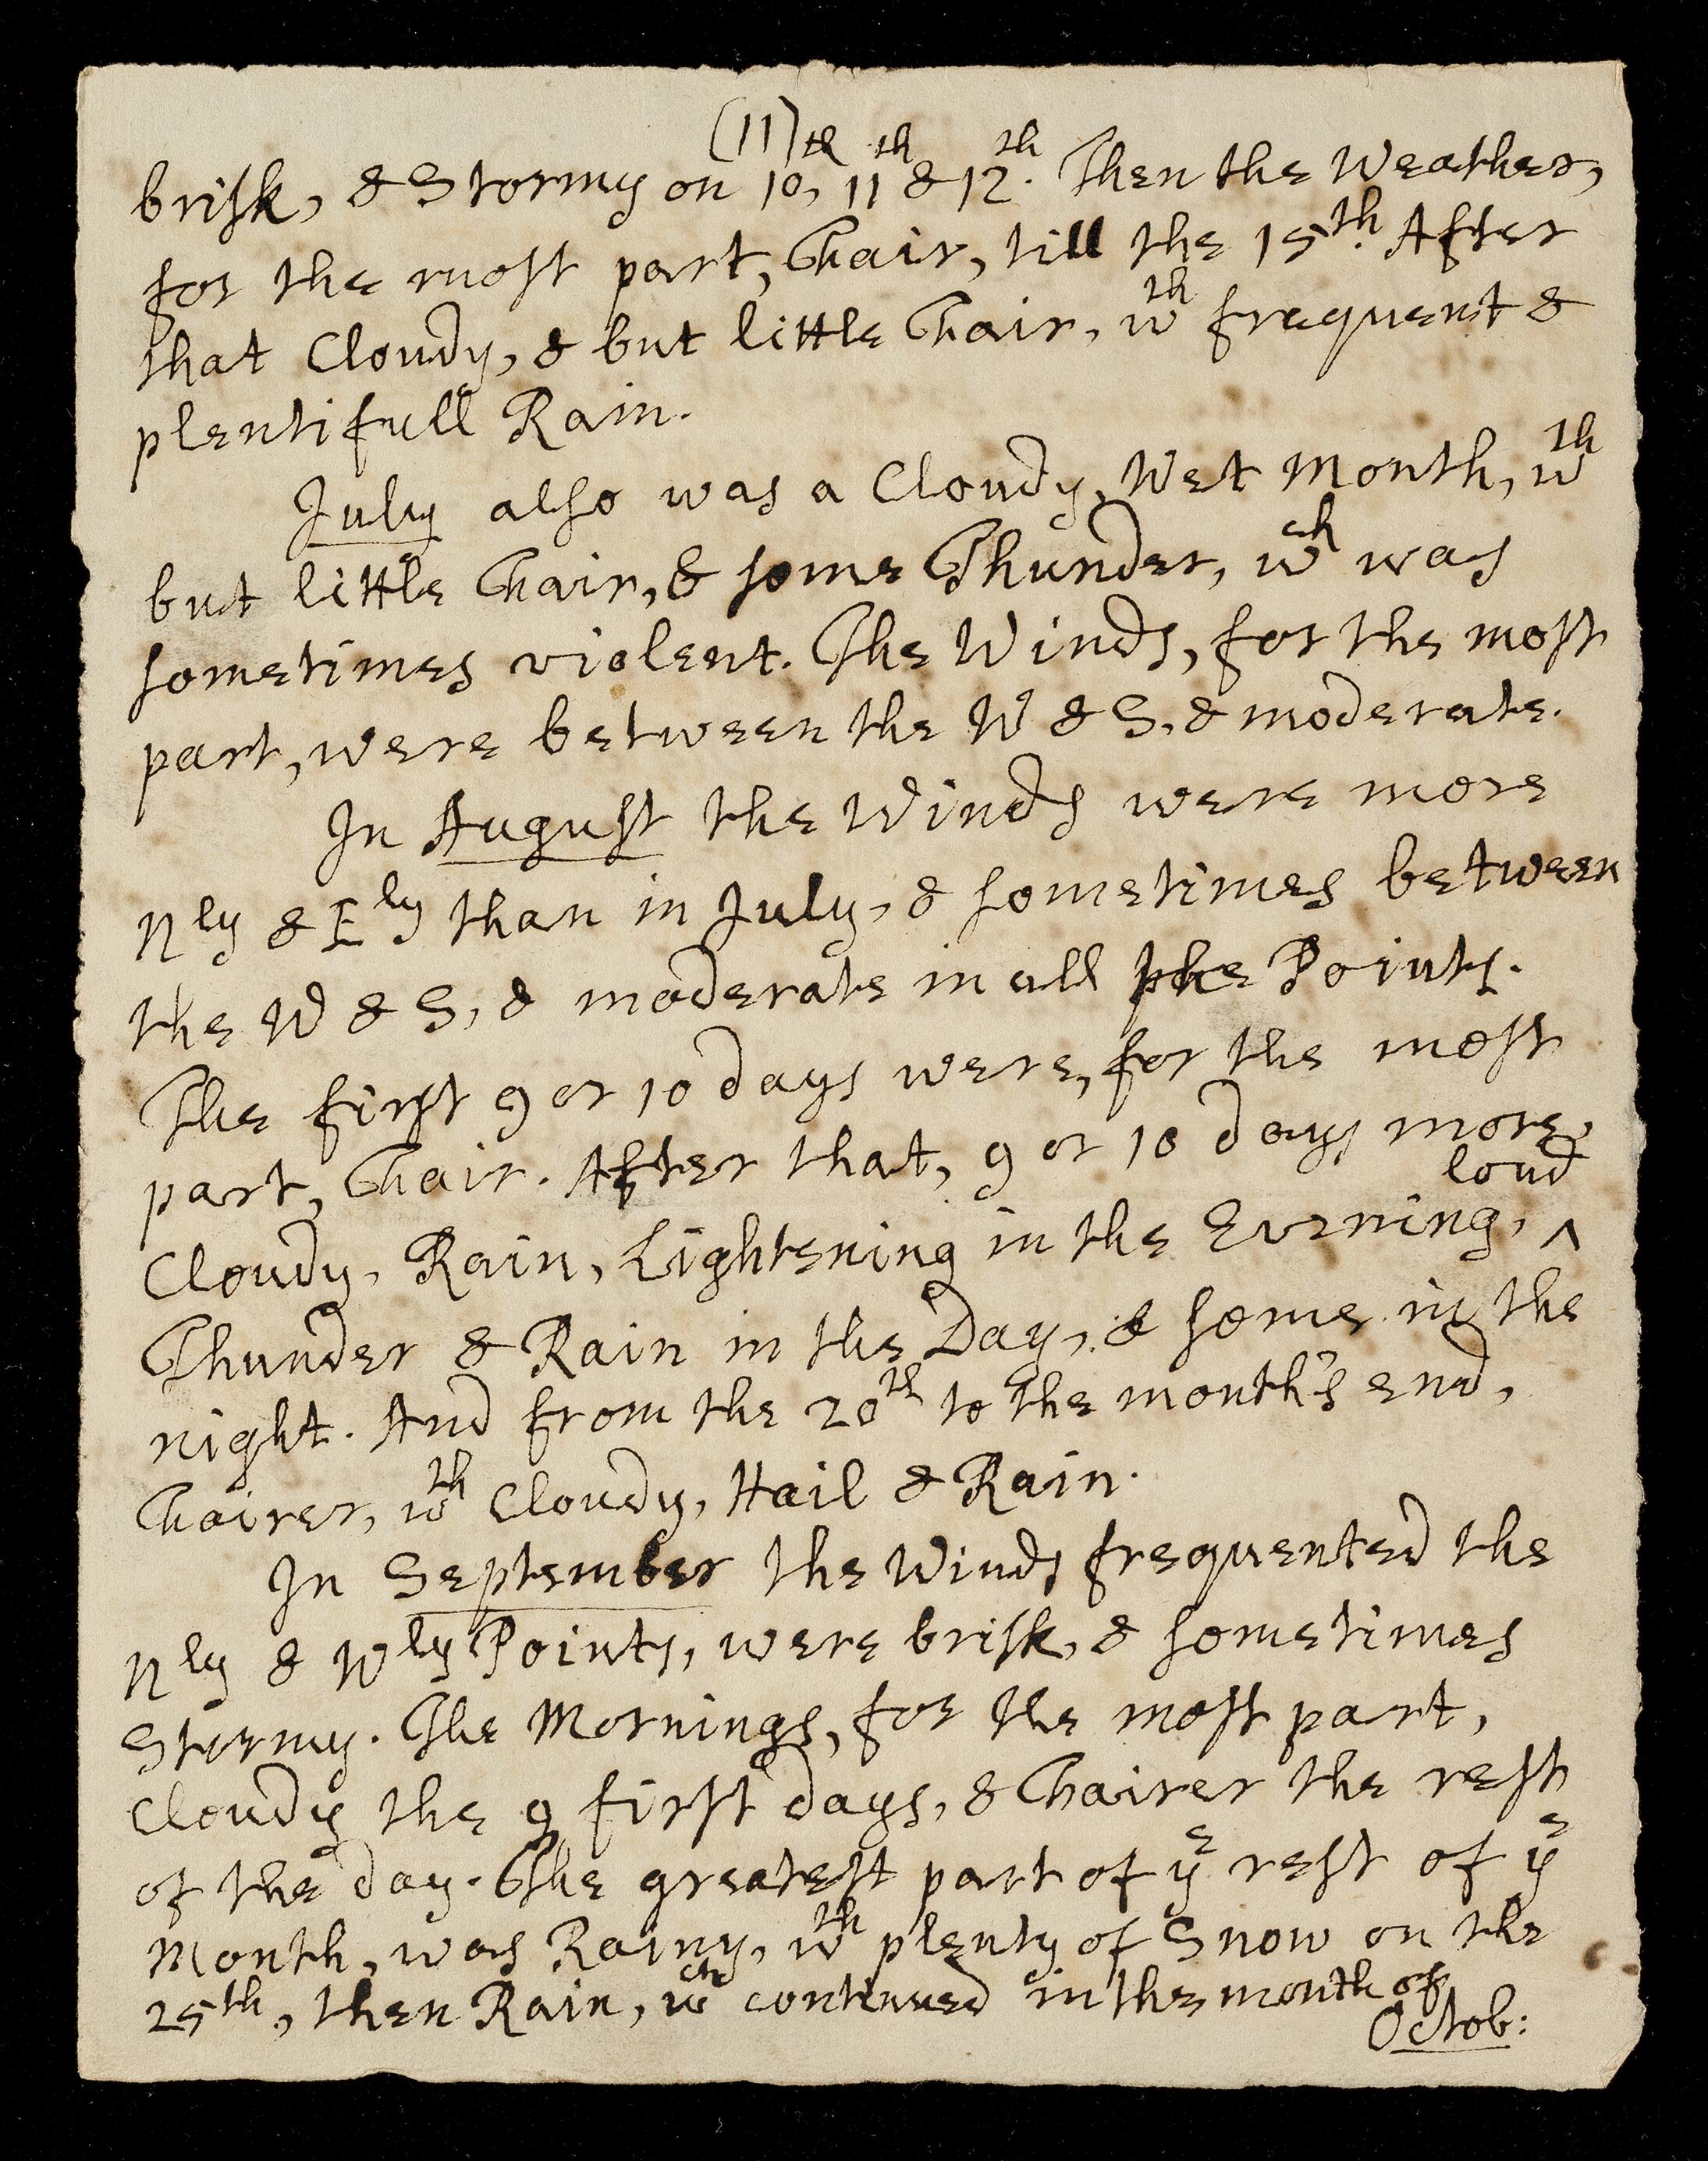 (11)
brisk, & Stormy on 10th, 11th & 12th. Then the Weather,
for the most part, Fair, till the 15th. After
that Cloudy, & but little Fair, wth frequent &
plentifull Rain.
July also was a Cloudy, Wet Month, wth
but little Fair, & some Thunder, wch was
sometimes violent. The Winds, for the most
part, were between the W & S, & moderate.
In August the Winds were more
Nly & Ely than in July, & sometimes between
the W & S, & moderate in all the Points.
The first 9 or 10 days were, for the most
part, Fair. After that, 9 or 10 days more,
Cloudy, Rain, Lightening in the Evening, ^ loud
Thunder & Rain in the Day, & some in the
night. And from the 20th to the month's end,
Fairer, wth Cloudy, Hail & Rain.
In September the Winds frequented the
Nly & Wly Points, were brisk, & sometimes
Stormy. The Mornings, for the most part,
Cloudy the 9 first days, & Fairer the rest
of the day. The greatest part of ye rest of ye
Month, was Rainy, wth plenty of Snow on the
25th, then Rain, wch continued in the month of
Octob: